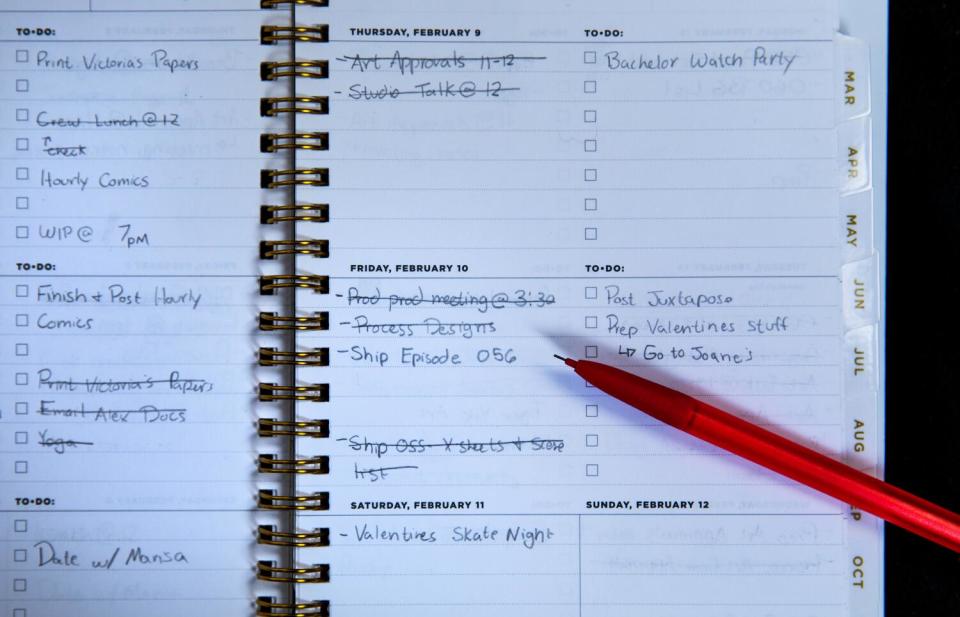 TO•DO:
Print Victorias Papers
Crew Lunch @ 12
↑
check
Hourly Comics
WIP @ 7pm
TO•DO:
Finish + Post Hourly
Comics
Print Victoria's Papers
Email Alex Docs
Yoga
TO•DO:
Date w/ Marisa
THURSDAY, FEBRUARY 9
- Art Approvals 11-12
- Studio Talk @ 12
TO•DO:
Bachelor Watch Party
FRIDAY, FEBRUARY 10
- Prod prod meeting @ 3:30
- Process Designs
- Ship Episode 056
- Ship 055 X sheets + Score
list
TO•DO:
Post Juxtapose
Prep Valentines stuff
↳ Go to Joane's
SATURDAY, FEBRUARY 11
- Valentines Skate Night
SUNDAY, FEBRUARY 12
MAR
APR
MAY
JUN
JUL
AUG
OCT